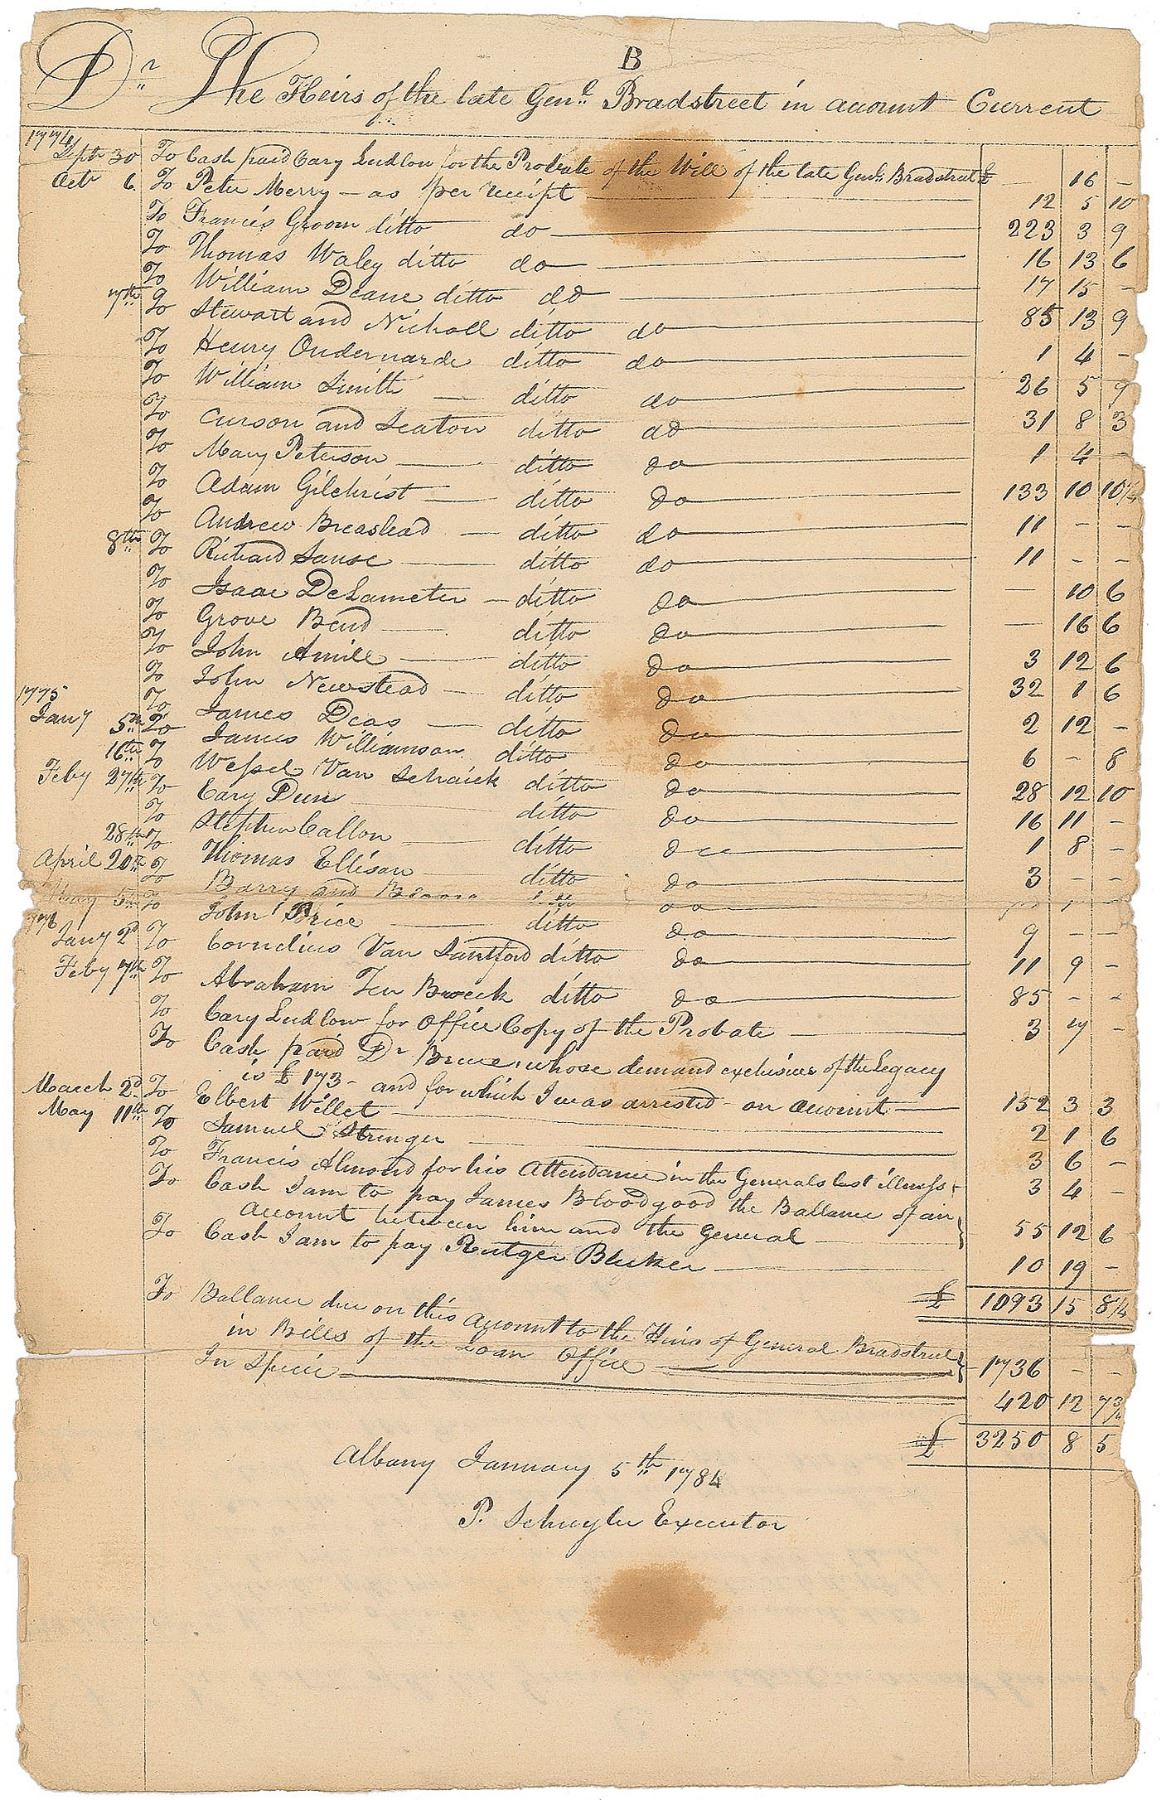 B
Dr The Heirs of the late Genl. Bradstreet in account Current
1774
Sepr 30 To Cash paid Cary Ludlow for the Probate of the Will of the late Genl. Bradstreet £ — 16 —
Octr 6. To Peter Merry — as per receipt 12 5 10
To Francis Groom ditto do 223 3 9
To Thomas Waley ditto do 16 13 6
To William Deane ditto do 17 15 —
7th To Stewart and Nicholl ditto do 85 13 9
To Henry Oudernarde ditto do 1 4 —
To William Smith — ditto do 26 5 9
To Curson and Seaton ditto do 31 8 3
To Mary Peterson — ditto do 1 4 —
To Adam Gilchrist — ditto do 133 10 10 1/4
To Andrew Breasteed — ditto do 11 — —
8th To Richard Sause — ditto do 11 — —
To Isaac DeLameter — ditto do — 10 6
To Grove Bend — ditto do — 16 6
To John Amill — ditto do 3 12 6
To John Newstead — ditto do 32 1 6
1775
To James Deas — ditto do 2 12 —
Jany 5th To James Williamson ditto do 6 — 8
16th To Wessel Van Schaick ditto do 28 12 10
Feby 27th To Cary Dun ditto do 16 11 —
To Stephen Callon — ditto do 1 8 —
28th To Thomas Ellison ditto do 3 — —
April 20th To Barry and
May 5th To John Price — ditto do 9 — —
1776
Jany 2d To Cornelius Van Santford ditto do 11 9 —
Feby 7th To Abraham Ten Broeck ditto do 85 — —
To Cary Ludlow for Office Copy of the Probate — 3 7 —
To Cash paid Dr Bruce, whose demand exclusive of the Legacy
is £ 173 - and for which I was arrested - on account — 152 3 3
March 2d. To Elbert Willet — 2 1 6
May 11th To Samuel Stringer — 3 6 —
To Francis Almond for his Attendance in the Generals last illness 3 4 —
To Cash I am to pay James Bloodgood the Ballance of an
Account between him and the General — 55 12 6
To Cash I am to pay Rutger Bleeker — 10 19 —
£ 1093 15 8 1/4
To Ballance due on this Account to the Heirs of General Bradstreet
in Bills of the Loan Office — 1736 — —
In Specie — 420 12 7 3/4
£ 3250 8 5
Albany January 5th 1784
P. Schuyler Executor